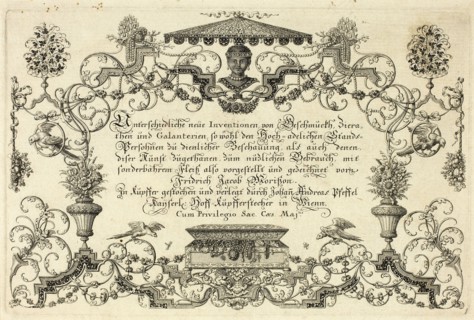 Unterschiedliche neüe Inventionen von Geschmückh, Ziera,
then und Galanterien, so wohl den Hoch-adelichen Stands-
Persohnen zü dienlicher Beschauung, als auch denen
diser Künst zügethanen, züm nüdlichen Gebrauch, mit
sonderbahrem Fleiß also vorgestells und gezeichnet vom
Fridrich Jacob Morison.
In Küpfer gestochen und verlegt dürch Johañ Andreas Pfeffel
Kayserl. Hoff Küpfferstecher in Wienn.
Cum Privilegio Sac. Cæs. Maj.